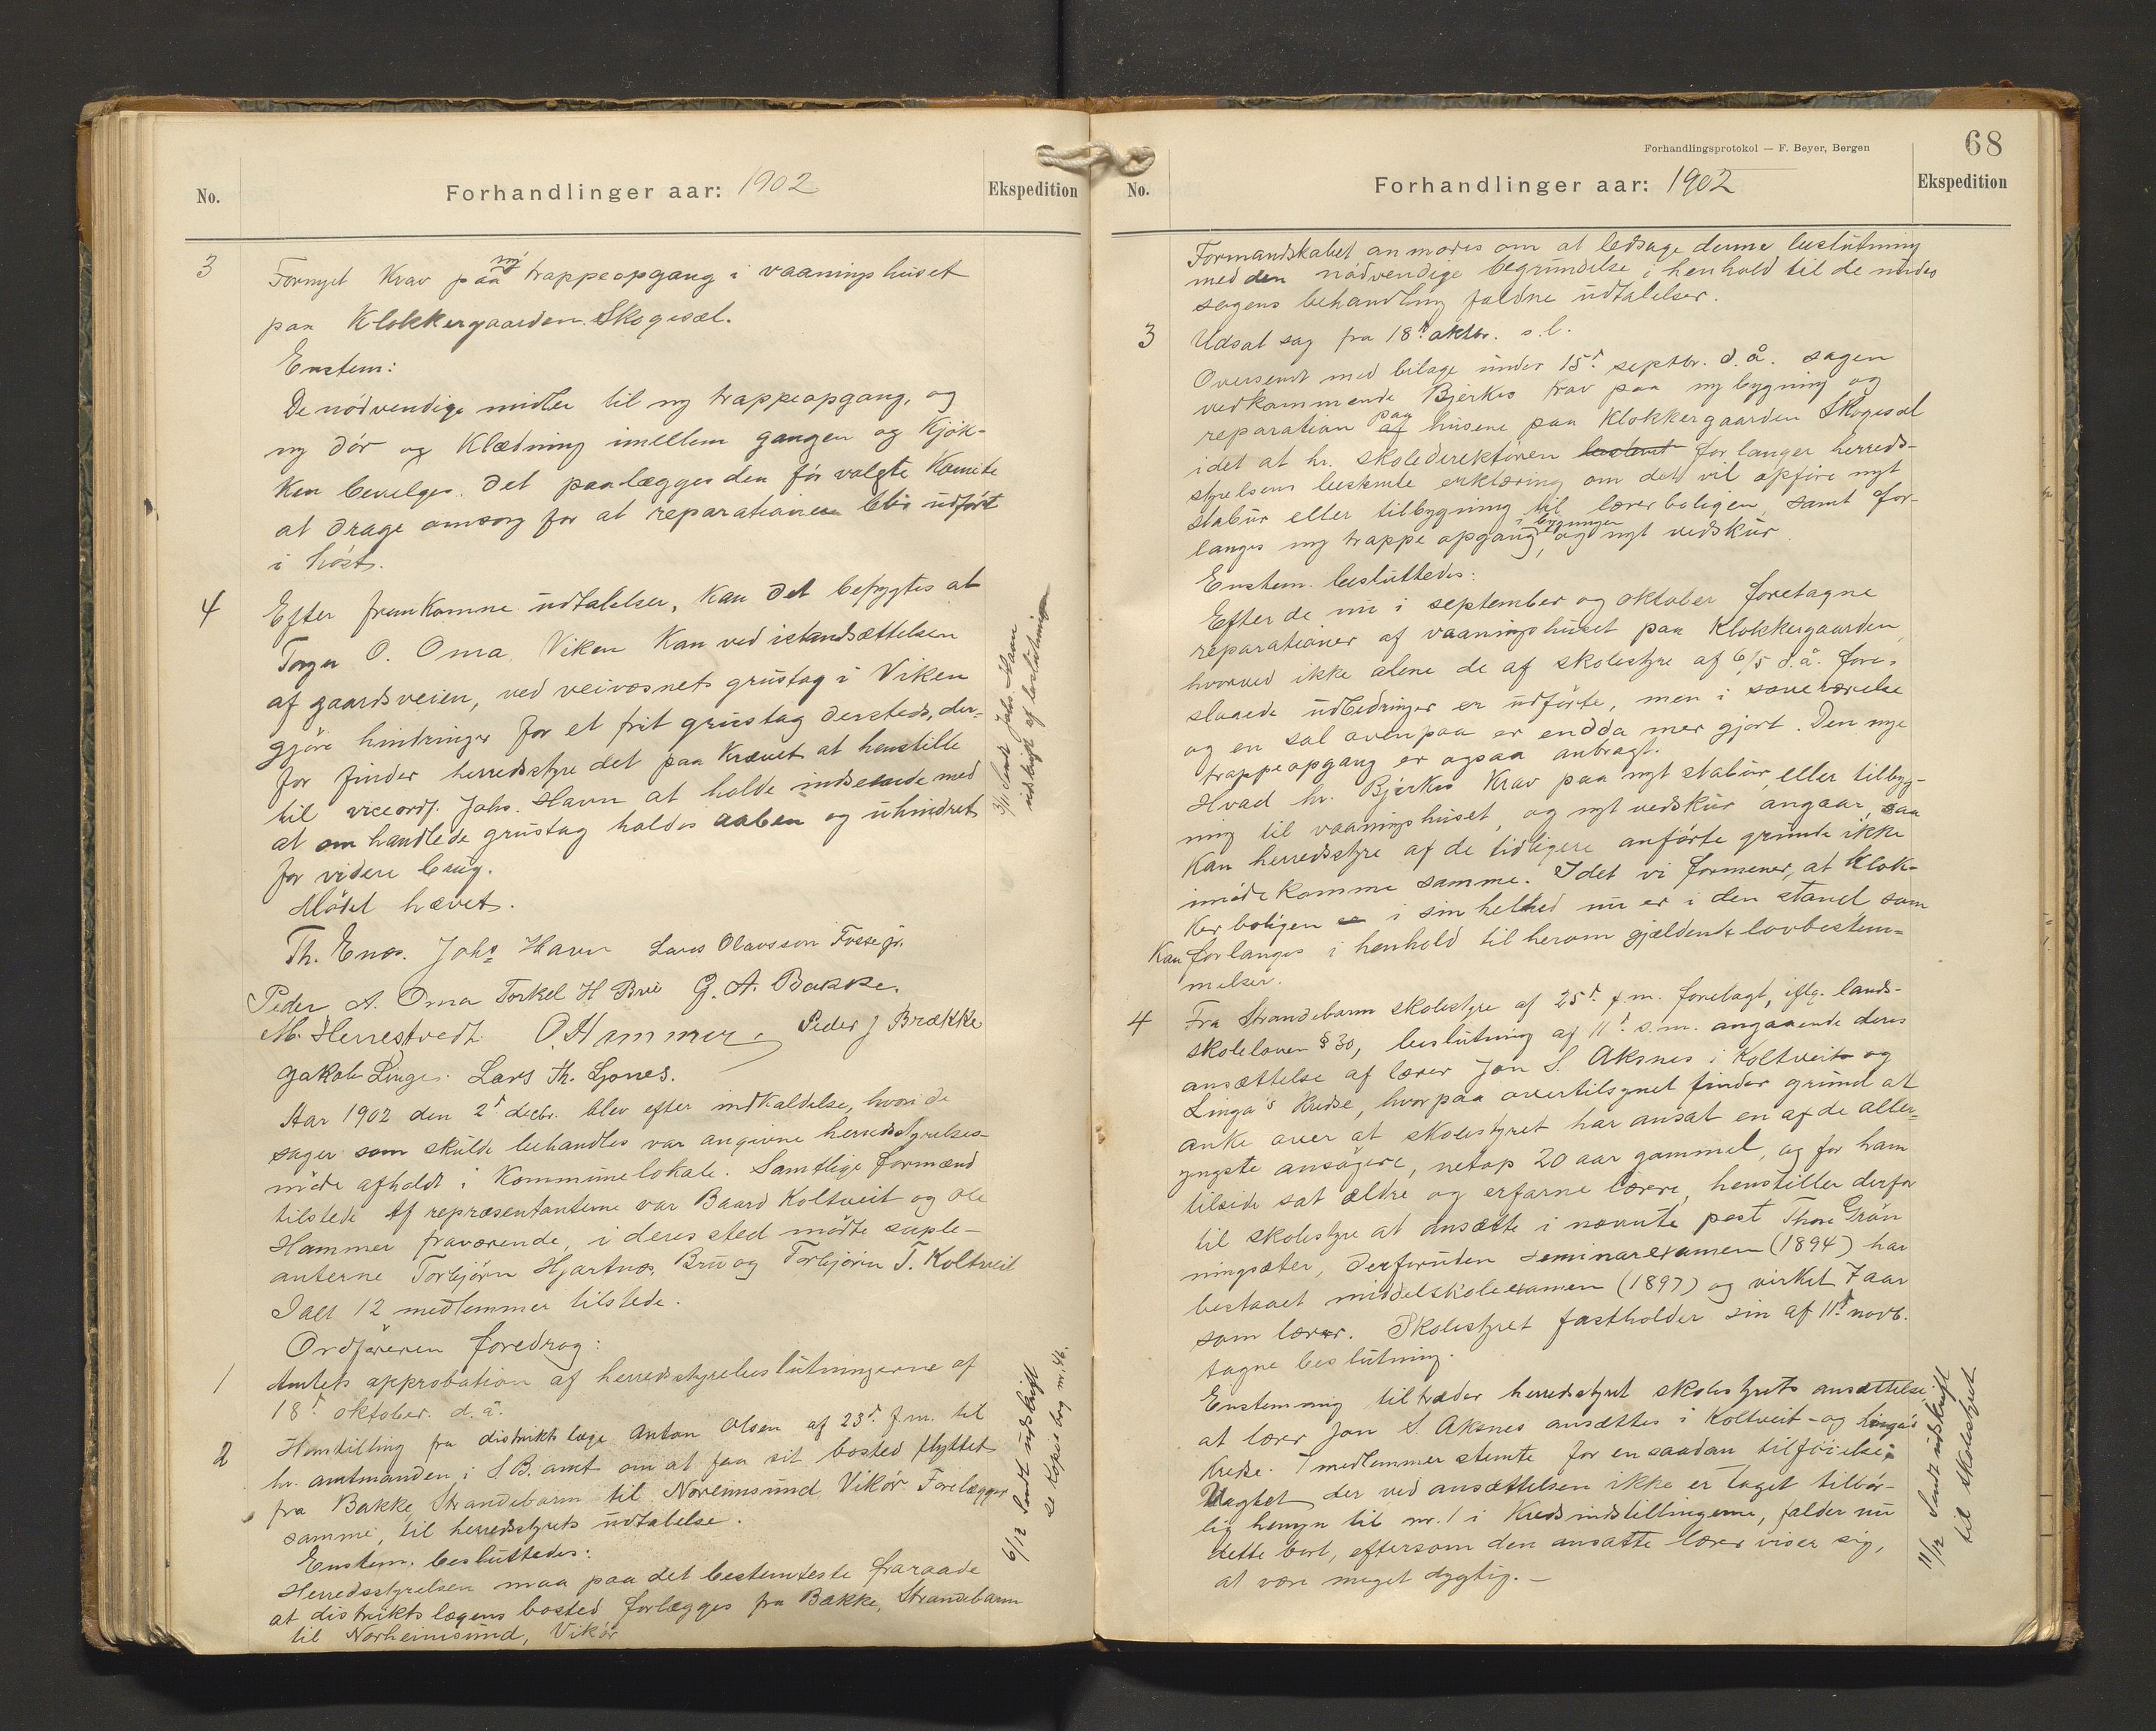 No.
Forhandlinger aar: 1902
Ekspedition
3
Fornyet Krav paa ny trappeopgang i vaaningshuset
paa Klokkergaarden Skogesæl.
Enstem:
De nödvendige midler til ny trappeopgang, og
ny dör og Klædning imellem gangen og Kjök-
ken bevilges. Det paalægges den för valgte Komite
at drage omsorg for at reparationen blir udfört
i höst.
4
Efter fremkomne udtalelser, kan det befrygtes at
Torger O. Oma, Viken kan ved istandsættelsen
af gaardsveien, ved veivæsnets grustag i Viken
gjöre hindringer for et frit grustag dersteds, der-
for finder herredsstyre det paa Krævet at henstille
til viceordf. Johs. Havn at holde indseende med
at omhandlede grustag holdes aaben og uhindret
for videre brug.
Mödet hævet.
3/11 Sendt Johs Havn
udskrift af beslutningen
Th. Enes. Johs Havn Lars Olavsson Fosse jr.
Peder A. Oma Torkel H Brü G. A. Bakke.
M. Herrestvedt. O. Hammer. Peder J Brække
Jakob Linge. Lars Th. Ljones.
Aar 1902 den 2d decbr. blev efter indkaldelse, hvori de
sager som skulde behandles var angivne herredsstyrelses-
möde afholdt i Kommunelokale. Samtlige formænd
tilstede Af repræsentanterne var Baard Koltveit og Ole
Hammer fraværende, i deres sted mödte suple-
anterne Torbjörn Hjartnes, Brü og Torbjörn T. Koltveit
Ialt 12 medlemmer tilstede.
Ordföreren foredrog:
1
Amtets approbation af herredsstyrebeslutningerne af
18d oktober d.å.
2
Henstilling fra distriktslæge Anton Olsen af 23d f.m. til
hr. amtmanden i S.B. amt om at faa sit bosted flyttet
fra Bakke, Strandebarm til Noreimsund, Vikör Forelægges
samme, til herredsstyrets udtalelse.
Enstem. besluttedes:
Herredsstyrelsen maa paa det bestemteste fraraade
at distriktslægens bosted forlægges fra Bakke, Strandebarm
til Norheimsund, Vikör
6/12 Sendt udskrift
se Kopiebog nr. 46.
Forhandlingsprotokol — F. Beyer, Bergen
68
No.
Forhandlinger aar: 1902
Ekspedition
Formandskabet anmodes om at ledsage denne beslutning
med den nödvendige begrundelse i henhold til de under
sagens behandling faldne udtalelser.
3
Udsat sag fra 18d oktbr. s.l.
Oversendt med bilage under 15d septbr. d.å. sagen
vedkommende Bjerkes krav paa ny bygning og
reparation af paa husene paa Klokkergaarden Skogesæl
idet at hr. skoledirektören bestemt forlanger herreds-
styrelsens bestemte erklæring om det vil opföre nyt
stabur eller tilbygning til lærerboligen, samt for-
langes ny trappeopgang i bygningen, og nyt vedskur.
Enstem. besluttedes:
Efter de nu i september og oktober foretagne
reparationer af vaaningshuset paa Klokkergaarden,
hvorved ikke alene de af skolestyre af 6/5 d.å. fore-
slaaede udbedringer er udförte, men i soveværelse
og en sal ovenpaa er endda mer gjort. Den nye
trappeopgang er ogsaa anbragt.
Hvad hr. Bjerkes Krav paa nyt stabur, eller tilbyg-
ning til vaaningshuset, og nyt vedskur angaar, saa
kan herredsstyre af de tidligere anförte grunde ikke
imödekomme samme. Idet vi formener, at Klok-
kerboligen er i sin helhed nu er i den stand som
Kan forlanges i henhold til herom gjældende lovbestem-
melser.
4
Fra Strandebarm skolestyre af 25d f.m. forelagt, iflg. lands-
skoleloven § 30, beslutning af 11d s.m. angaaende deres
ansættelse af lærer Jon S. Aksnes i Koltveit og
Linga's Kredse, hvorpaa overtilsynet finder grund at
anke over at skolestyret har ansat en af de aller-
yngste ansögere, netop 20 aar gammel, og for ham
tilside sat ældre og erfarne lærere, henstiller derfor
til skolestyre at ansætte i nævnte post Thore Grön
ningsæter, derforuden seminarexamen (1894) har
bestaaet middelskoleexamen (1897) og virket 7 aar
som lærer. Skolestyret fastholder sin af 11d novb.
tagne beslutning.
Enstemmig tiltræder herredsstyret skolestyrets ansættelse,
at lærer Jon S. Aksnes ansættes i Koltveit- og Linga's
Kredse. 7 medlemmer stemte for en saadan tilföielse:
Uagtet der ved ansættelsen ikke er taget tilbör-
lig hensyn til nr. 1 i Kredsindstillingerne, falder nu
dette bort, eftersom den ansatte lærer viser sig,
at være meget dygtig. —
11/12 Sendt udskrift
til skolestyret